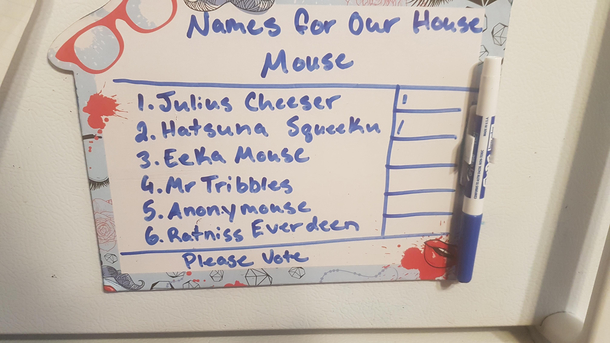 Names for Our House
Mouse
1. Julius Cheeser
2. Hatsuna Squeeku
3. Eeka Mouse
4. Mr Tribbles
5. Anonymouse
6. Ratniss Everdeen
Please Vote